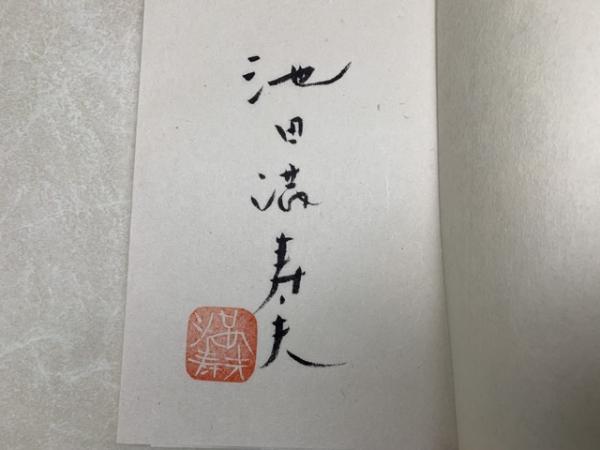 池田満寿夫
満寿夫